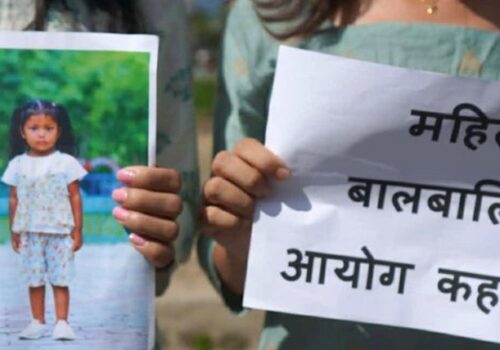 महिल
बालबालि
आयोग कह